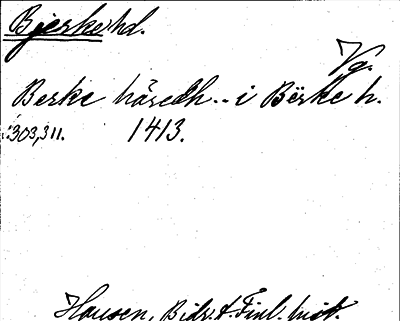 Bjerke hd.
Vg.
Berke häredh.. i Bërke h.
303,311. 1413.
Hausen, Bidr. t. Finl. hist.